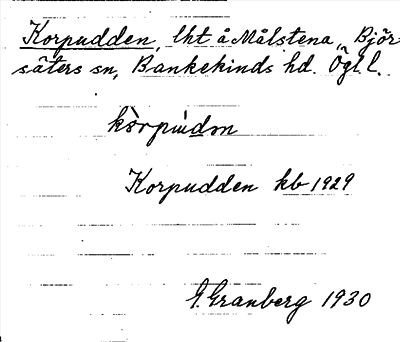 Korpudden, lht å Målstena, Björ-
säters sn, Bankekinds hd. Ögl. l.
kòrpùdən
Korpudden kb 1929
G. Granberg 1930